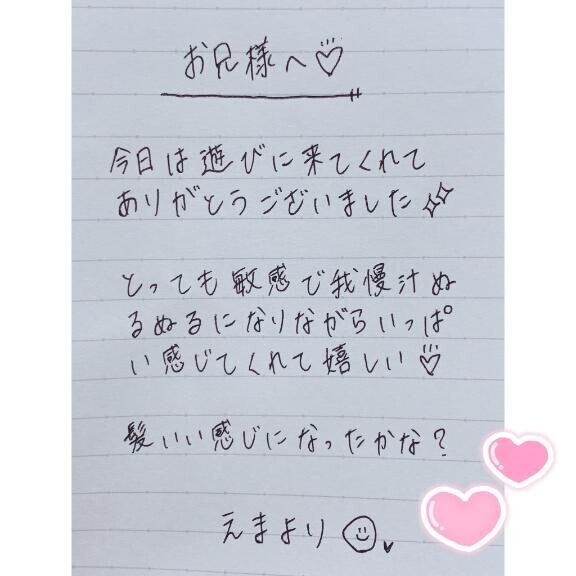 お兄様へ♡
今日は遊びに来てくれて
ありがとうございました✨
とっても敏感で我慢汁ぬ
るぬるになりながらいっぱ
い感じてくれて嬉しい♡
髪いい感じになったかな？
えまより